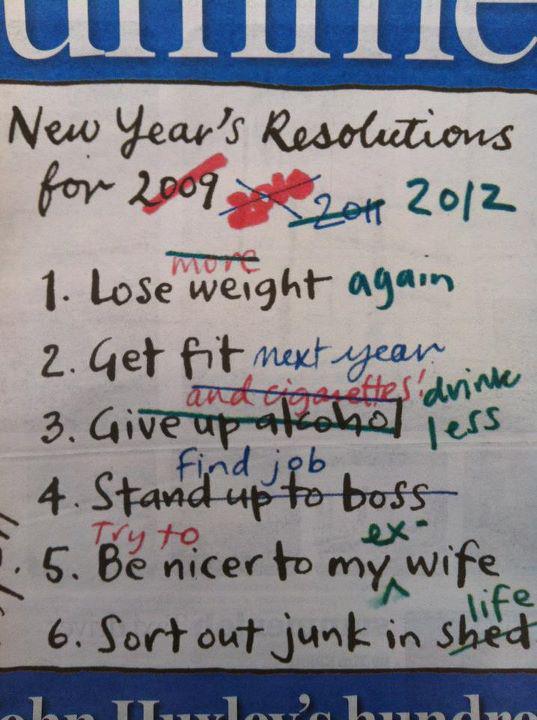 New Year's Resolutions
for 2009 2011 2012
more
1. Lose weight again
2. Get fit next year
and cigarettes! drink
3. Give up alcohol less
find job
4. Stand up to boss
Try to ex-
5. Be nicer to my wife
life
6. Sort out junk in shed
ohn Huxley's hundre